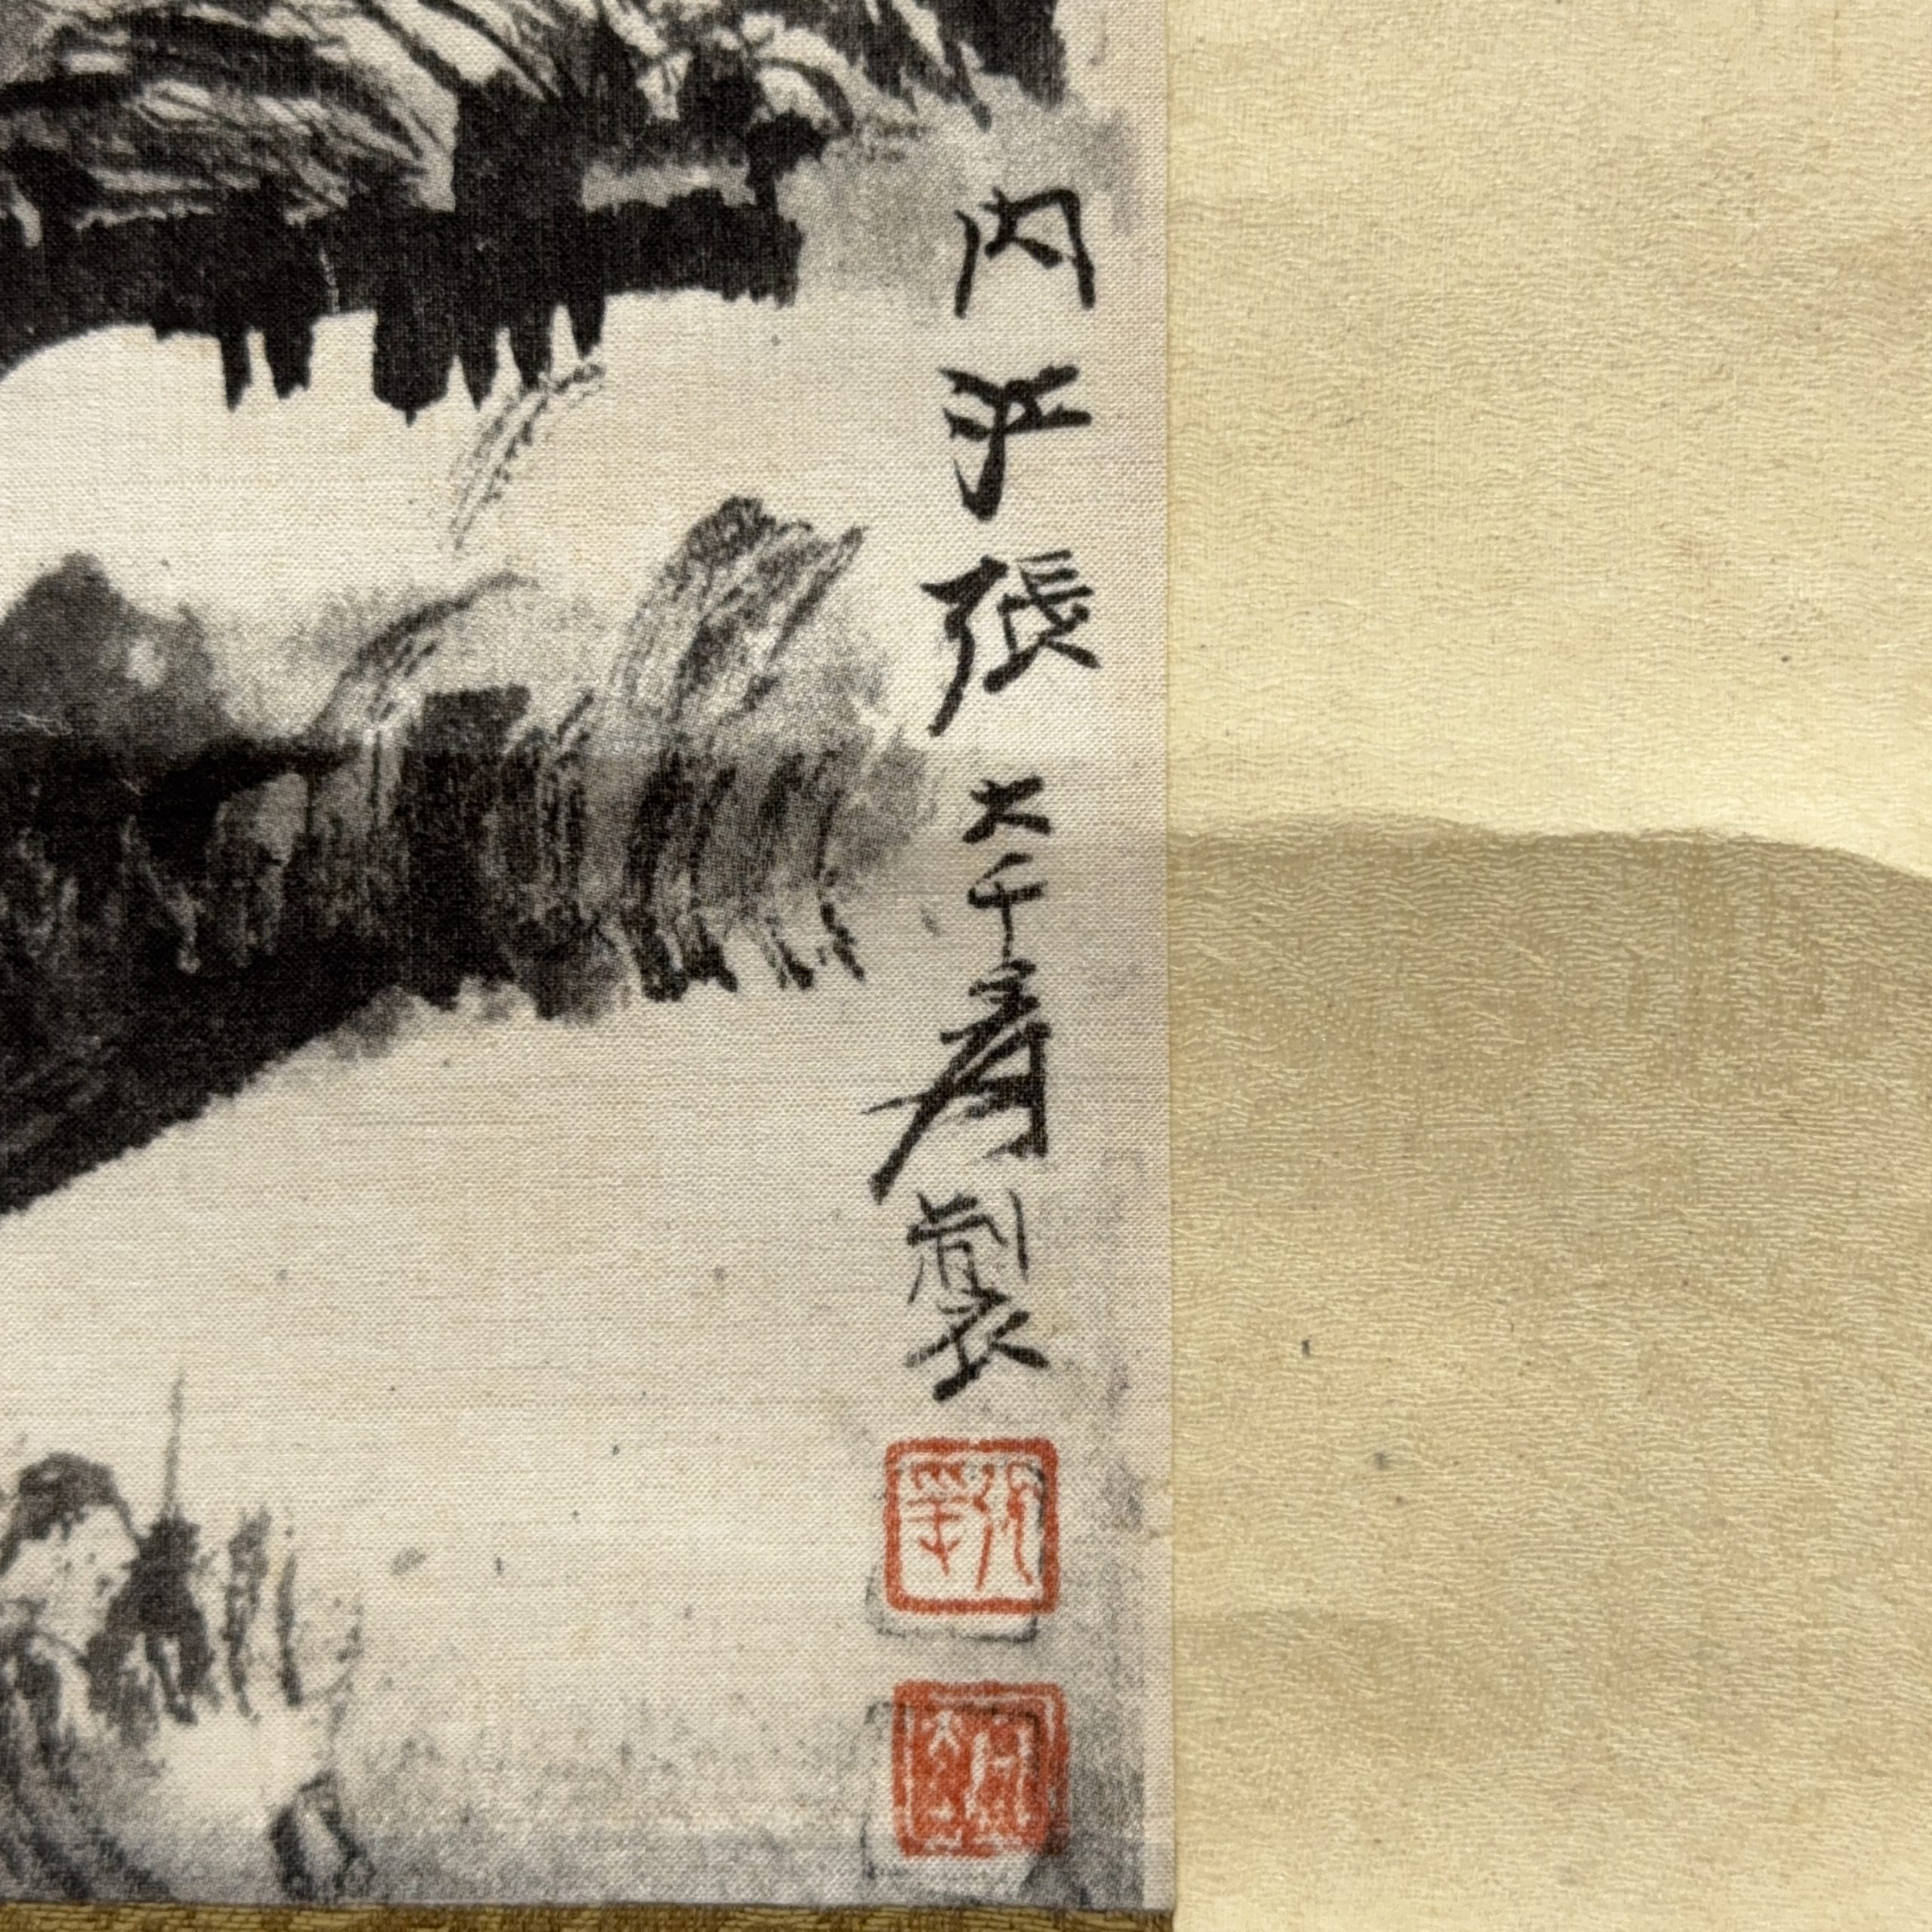 内江張大千爰製